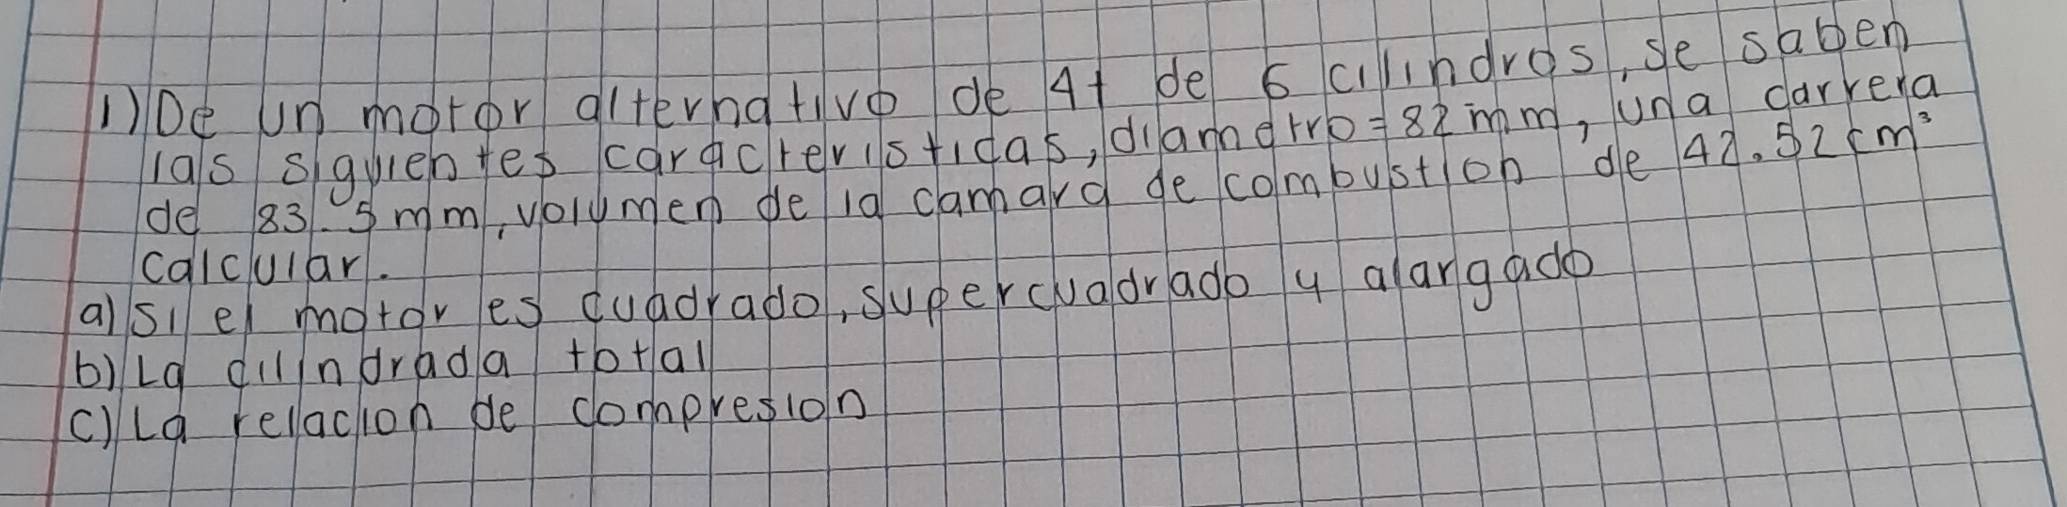 1) De un motor alternativo de 4t de 6 cilindros, se saben
las siguientes caracteristicas, diamatro = 82 mm, una carrera
de 83.5 mm, volumen de la camara de combustion de 42.52 cm³
calcular.
a) si el motor es cuadrado, supercuadrado y alargado
b) La cilindrada total
c) La relacion de compresion